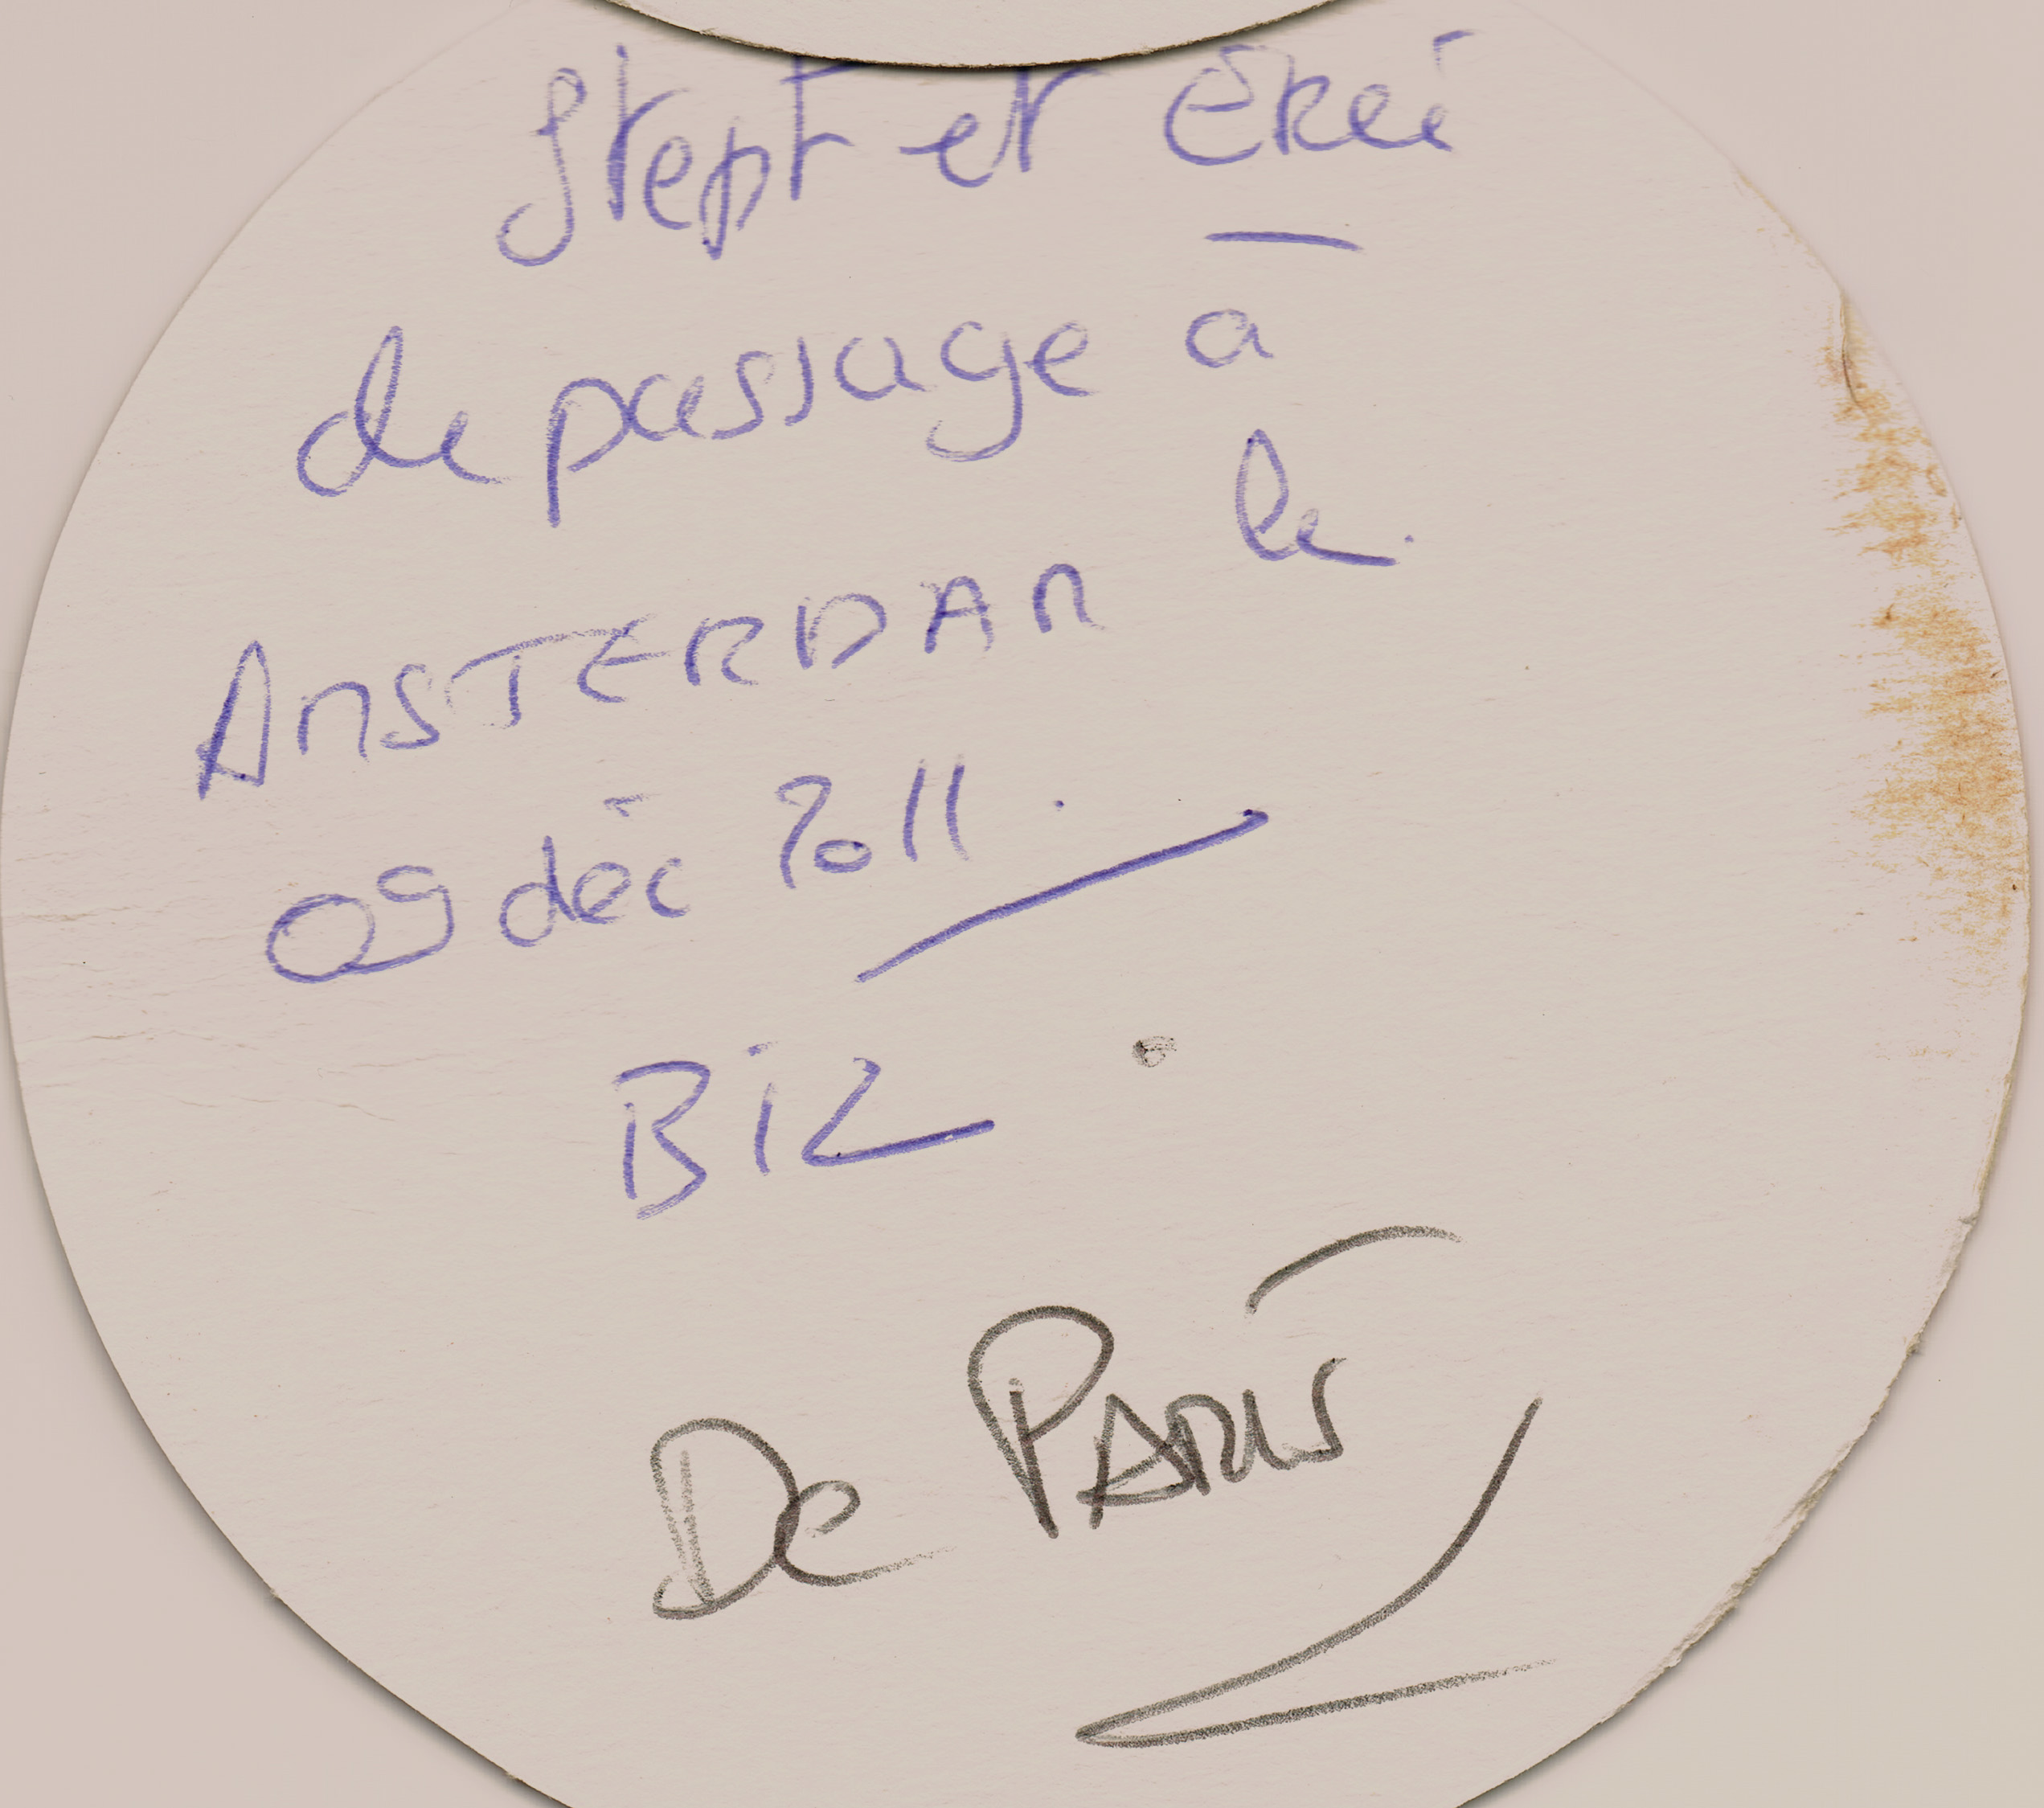 Steph et
de passage à
AMSTERDAM le.
09 déc 2011.
BiZ
De PARIS